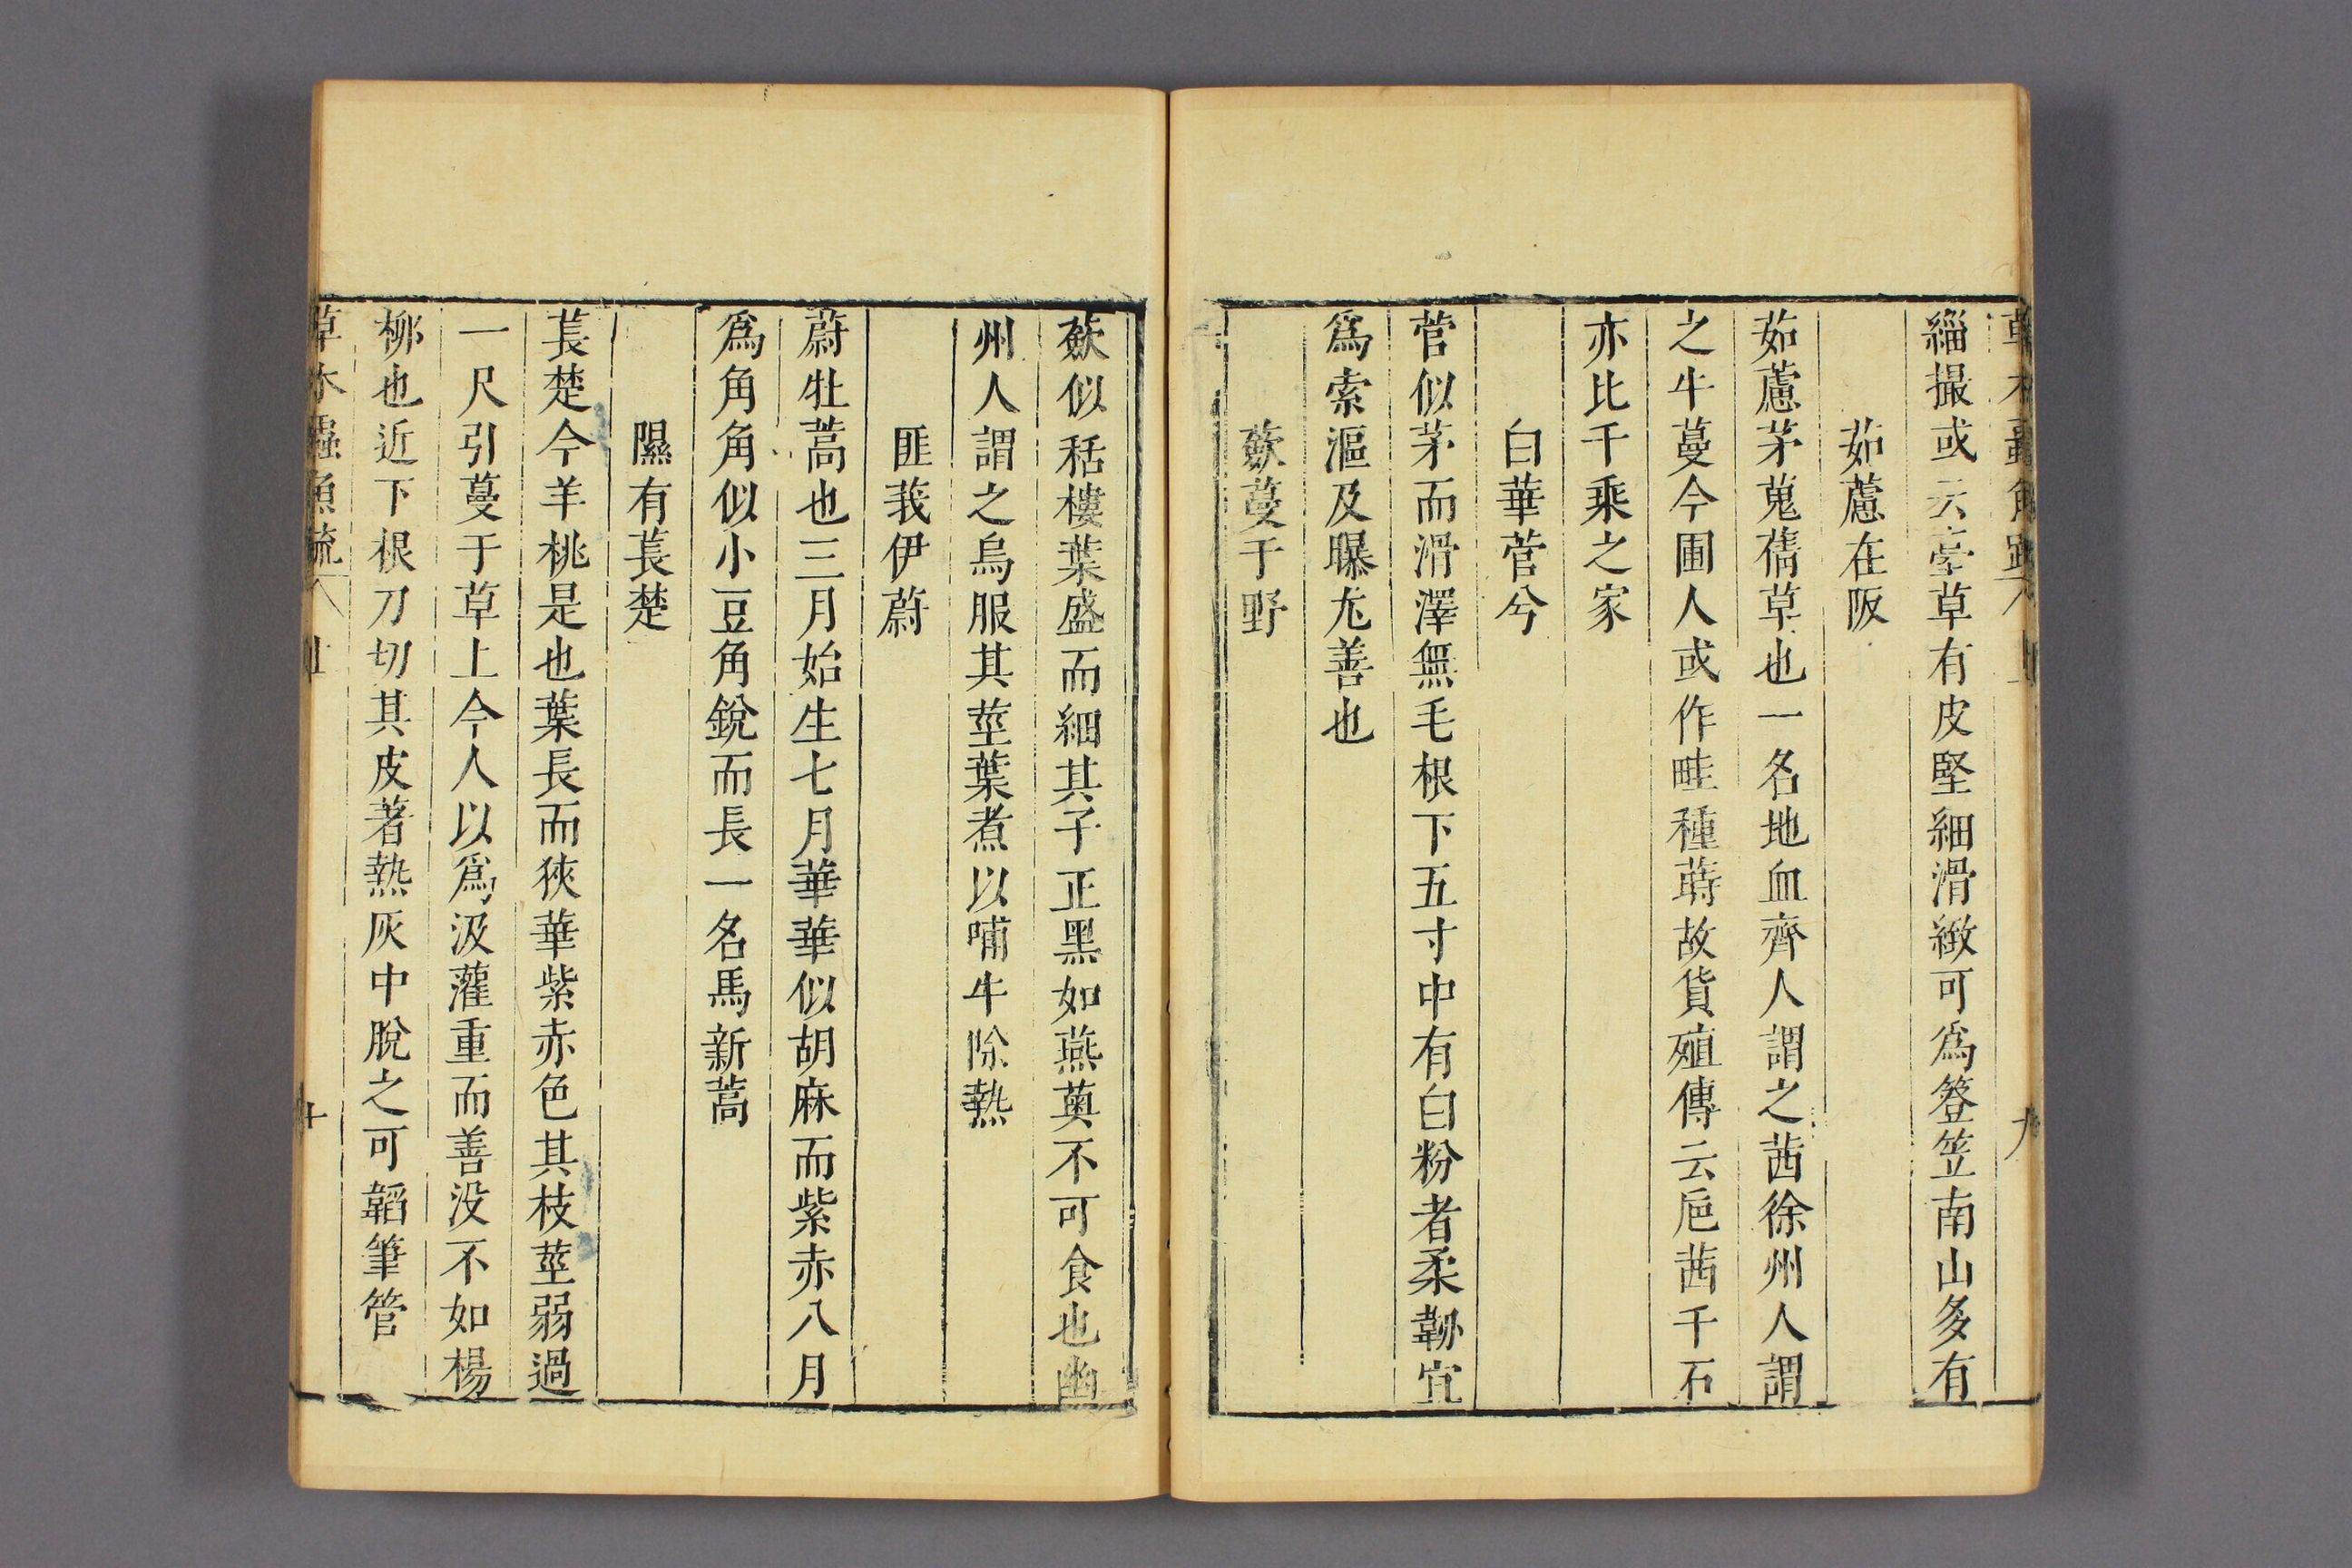 草木蟲魚疏 上 九
緇撮或云臺草有皮堅細滑緻可爲簦笠南山多有
茹藘在阪
茹藘茅蒐蒨草也一名地血齊人謂之茜徐州人謂
之牛蔓今圃人或作畦種蒔故貨殖傳云巵茜千石
亦比千乘之家
白華菅兮
菅似茅而滑澤無毛根下五寸中有白粉者柔韌宜
爲索漚及曝尤善也
蘞蔓于野
蘞似栝樓葉盛而細其子正黑如燕薁不可食也幽
州人謂之烏服其莖葉煮以哺牛除熱
匪莪伊蔚
蔚牡蒿也三月始生七月華華似胡麻而紫赤八月
爲角角似小豆角銳而長一名馬新蒿
隰有萇楚
萇楚今羊桃是也葉長而狹華紫赤色其枝莖弱過
一尺引蔓于草上今人以爲汲灌重而善没不如楊
柳也近下根刀切其皮著熱灰中脫之可韜筆管
草木蟲魚疏 上 十